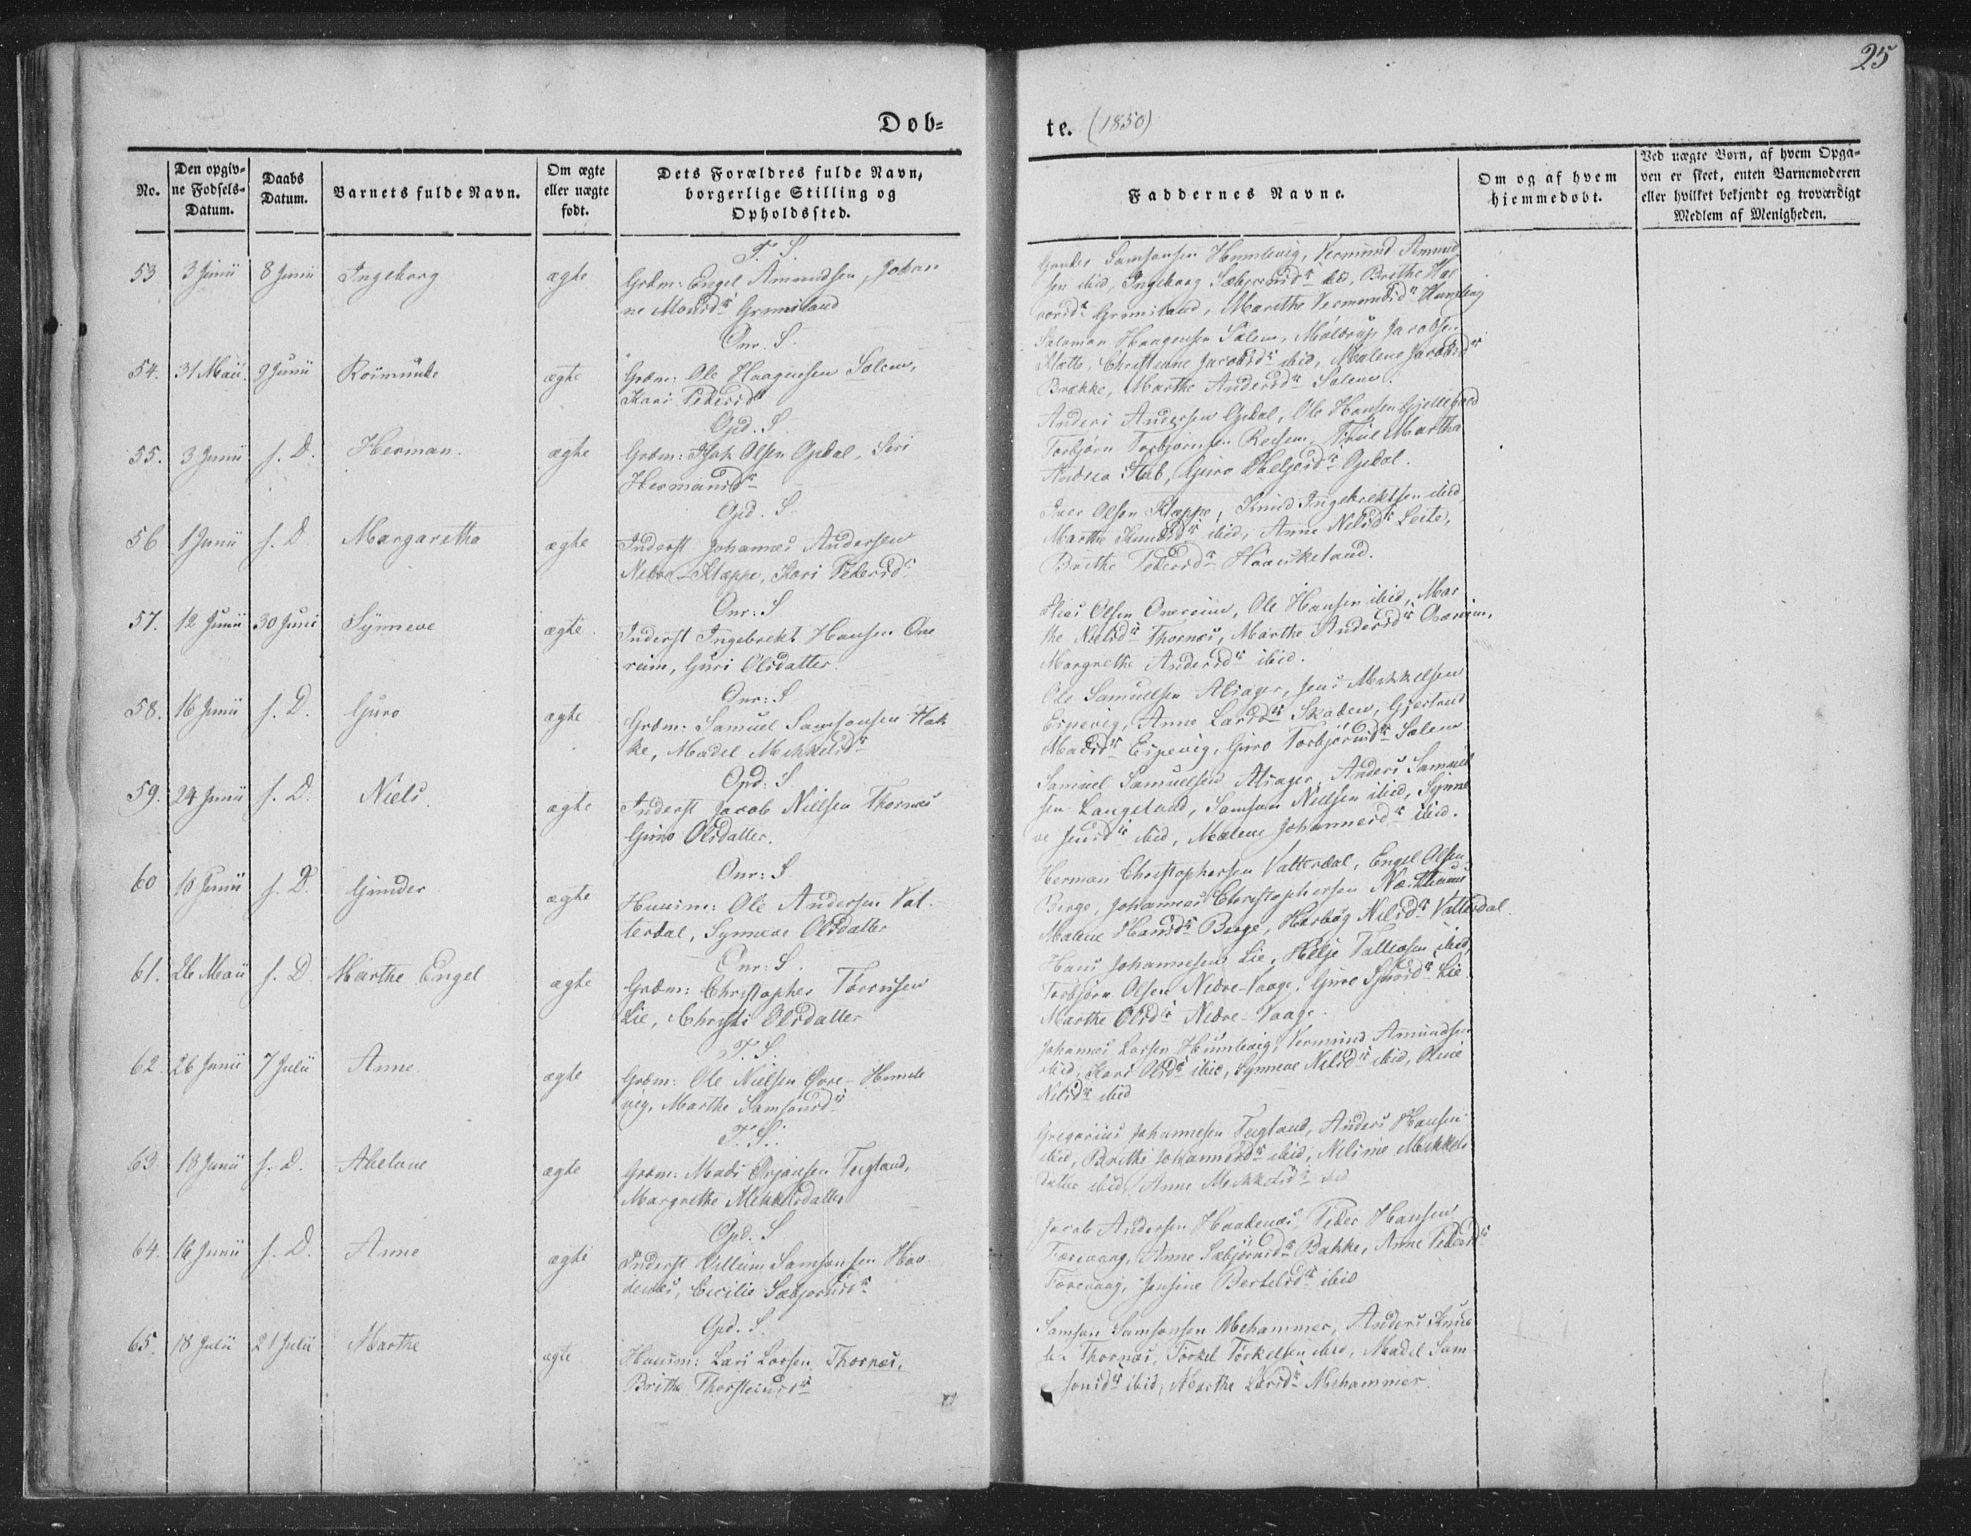 25
Døb=
te. (1850)
No.
Den opgiv-
ne Fødsels-
Datum.
Daabs
Datum.
Barnets fulde Navn.
Om ægte
eller uægte
født.
Dets Forældres fulde Navn,
borgerlige Stilling og
Opholdssted.
Faddernes Navne.
Om og af hvem
hjemmedøbt.
Ved uægte Børn, af hvem Opga-
ven er skeet, enten Barnemoderen
eller hvilket bekjendt og troværdigt
Medlem af Menigheden.
T. S.
53 3 Junii 8 Junii Ingeborg ægte Grdm: Engel Amundsen, Johan
ne Monsdr Grimstand
Gunder Samsonsen Humlevig, Vermund Amund
sen ibid, Ingeborg Sæbjørnsdr ibid, Brithe Hal
vorsdr Marithe Vermundsdr Humlevig
Onr. S.
54. 31 Maii. 9 Junii Rasmunde ægte Grdm: Ole Haagensen Salem,
Kari Pedersdr
Salomon Haagensen Salem, Jacobsen
Christiane Jacobsdr ibid, Malene Jacobsdr
Brække, Marthe Andersdr Salem.
Opd. S.
55. 3 Junii s. D. Herman. ægte Grdm: Isak Olsen Opdal, Siri
Hermansdr
Anders Andersen Opdal, Ole Hansen
Torbjørn Torbjørnsen Martha
Andrea Guro Opdal.
Opd. S.
56 1 Junii s. D. Margaretha ægte Inderst Johannes Andersen
Nedre-Kleppe, Kari Pedersdr
Iver Olsen Kleppe, Knud Ingebrektsen ibid
Marthe Knudsdr ibid, Anne Nilsdr Leite,
Brithe Pedersdr Haaskeland.
Onr: S
57. 12 Junii 30 Juni Synneve ægte. Inderst Ingebrekt Hansen One
reim, Guri Olsdatter.
Olsen Onereim, Ole Hansen ibid, Mar
the Nielsdr Thornæs, Marthe Andersdr Onereim,
Margrethe Andersdr ibid.
Onr: S
58. 16 Junii s. D. Guro ægte Grdm: Samuel Samsonsen Hak
ke, Madel Mikkelsdr
Ole Samuelsen Alsager, Jens Mikkelsen
Espevig, Anne Larsdr Skaden, Gjertrud
Madsdr Espevig, Guro Torbjørnsdr Salem
Opd: S
59. 24 Junii s. D. Niels. ægte Inderst Jacob Nielsen Thornæs
Guro Olsdatter.
Samuel Samuelsen Alsager, Anders Samuel
sen Langeland, Samson Nielsen ibid, Synne
ve Jensdr ibid, Malene Johannesdr ibid.
Onr: S
60 10 Junii s. D. Gunder ægte Huusm: Ole Andersen Vat-
terdal, Synneve Olsdatter
Herman Christophersen Vatterdal, Engel Olsen
Berge, Johannes Christophersen
Malene Hansdr Berge, Herborg Nilsdr Vatterdal.
Onr: S.
61. 26 Maii s. D. Marthe Engel ægte Grdm: Christopher Tørresen
Lie, Christi Olsdatter
Hans Johannesen Lie, Helje Tollefsen ibid,
Torbjørn Olsen Nedre-Vaage, Gure Lie
Marthe Olsdr Nedre-Vaage.
T. S.
62. 26 Junii 7 Julii Anne. ægte Grdm: Ole Nielsen Øvre-Humle
vig, Marthe Samsonsdr
Johannes Larsen Humlevig, Vermund Amundsen
ibid, Kari Olsdr ibid, Synneve Nilsdr ibid, Oline
Nilsdr ibid
T. S.
63. 18 Junii s. D. Abelone ægte Grdm: Mads Ørjansen Teigland,
Margrethe Mikkelsdatter
Gregorius Johannesen Teigland, Anders Hansen
ibid, Brithe Johannesdr ibid, Nilsine Mikkels
datter ibid, Anne Mikkelsdr ibid
Opd. S
64. 16 Junii s. D. Anne ægte Inderst Villum Samsonsen Haa
denæs, Cicilie Sæbjørnsdr
Jacob Andersen Haadenæs, Peder Hansen
Færevaag, Anne Sæbjørnsdr Bakke, Anne Pedersdr
Færevaag, Jensine Bertelsdr ibid
Opd. S.
65. 18 Julii 21 Julii Marthe ægte Huusm: Lars Larsen Thornæs,
Brithe Thorsteinsdr
Samson Samsonsen Mehammer, Anders Knud
Thornæs, Torkel Torkelsen ibid, Madel Sam
sonsdr ibid, Marthe Larsdr Mehammer.